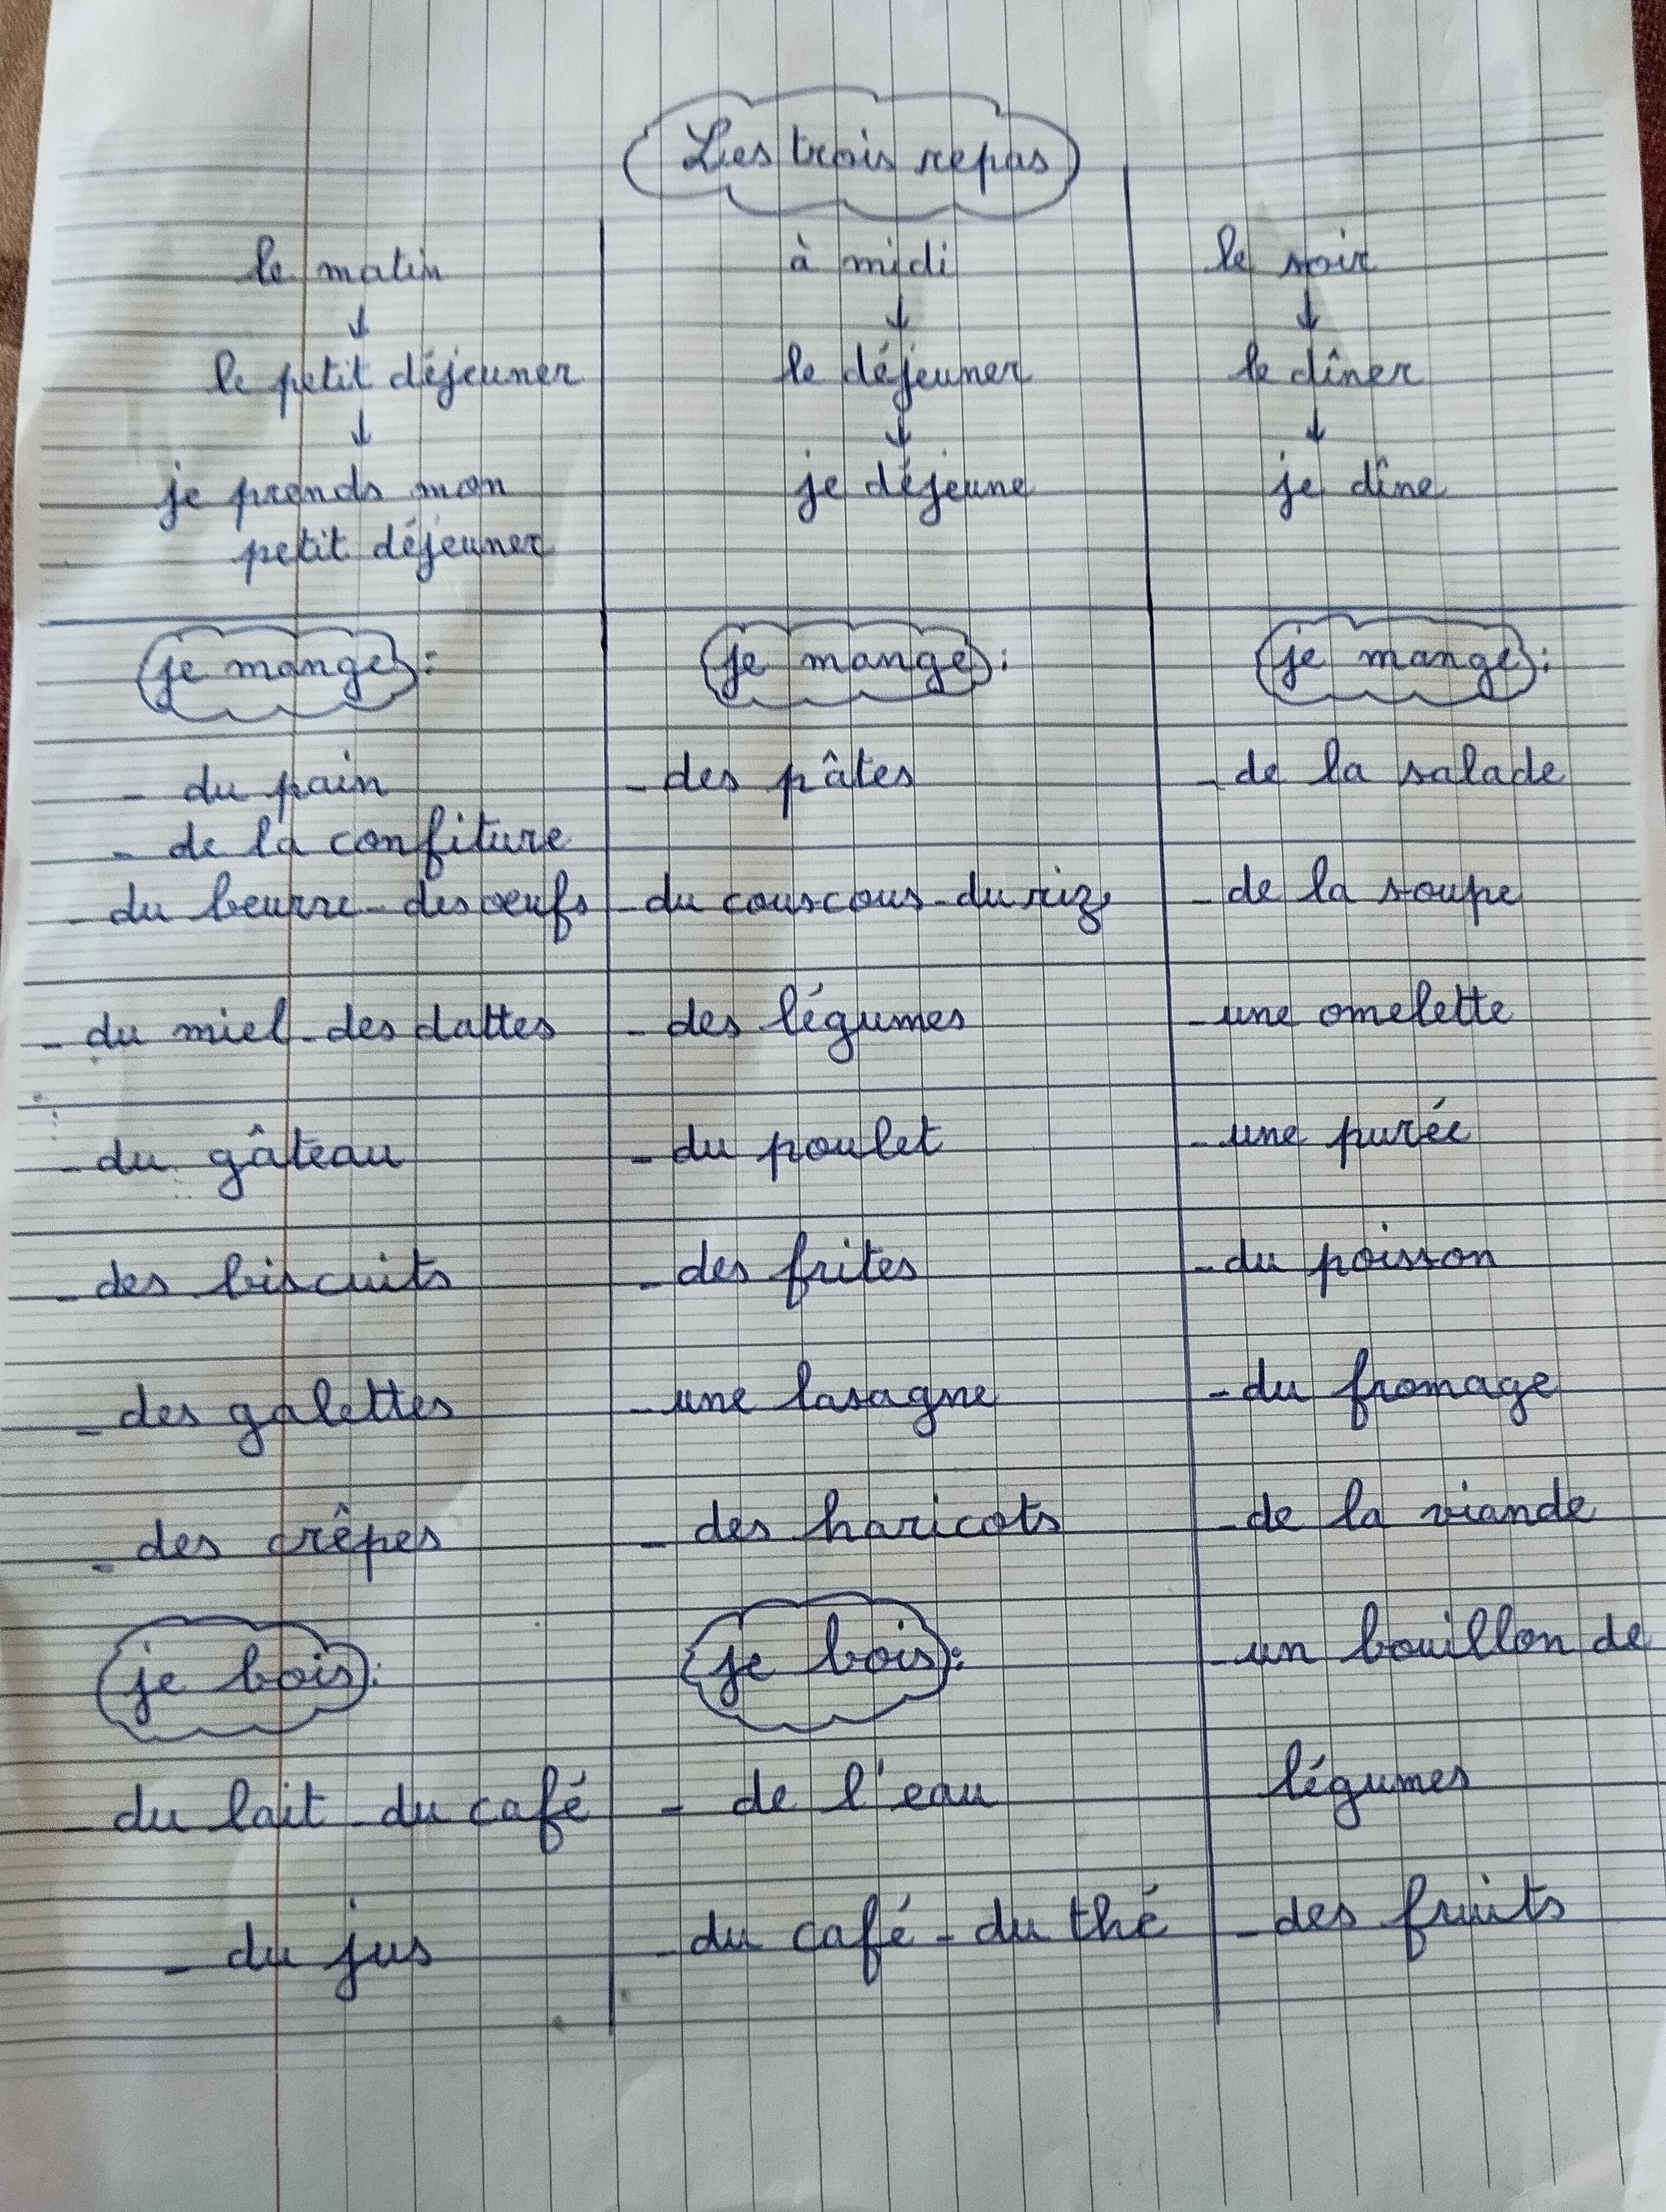 Les trois repas
le matin
↓
le petit déjeuner
↓
je prends mon
petit déjeuner
je mange :
- du pain
- de la confiture
- du beurre - des oeufs
- du miel - des dattes
- du gâteau
- des biscuits
- des galettes
- des crêpes
je bois :
- du lait - du café
- du jus
à midi
↓
le déjeuner
↓
je déjeune
je mange :
- des pâtes
- du couscous - du riz
- des légumes
- du poulet
- des frites
- une lasagne
- des haricots
je bois :
- de l'eau
- du café - du thé
le soir
↓
le dîner
↓
je dîne
je mange :
- de la salade
- de la soupe
- une omelette
- une purée
- du poisson
- du fromage
- de la viande
- un bouillon de
légumes
- des fruits